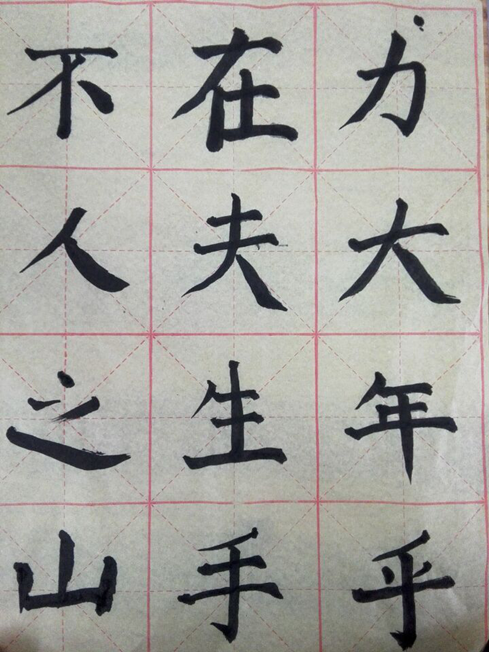 力大年乎
在夫生手
不人之山